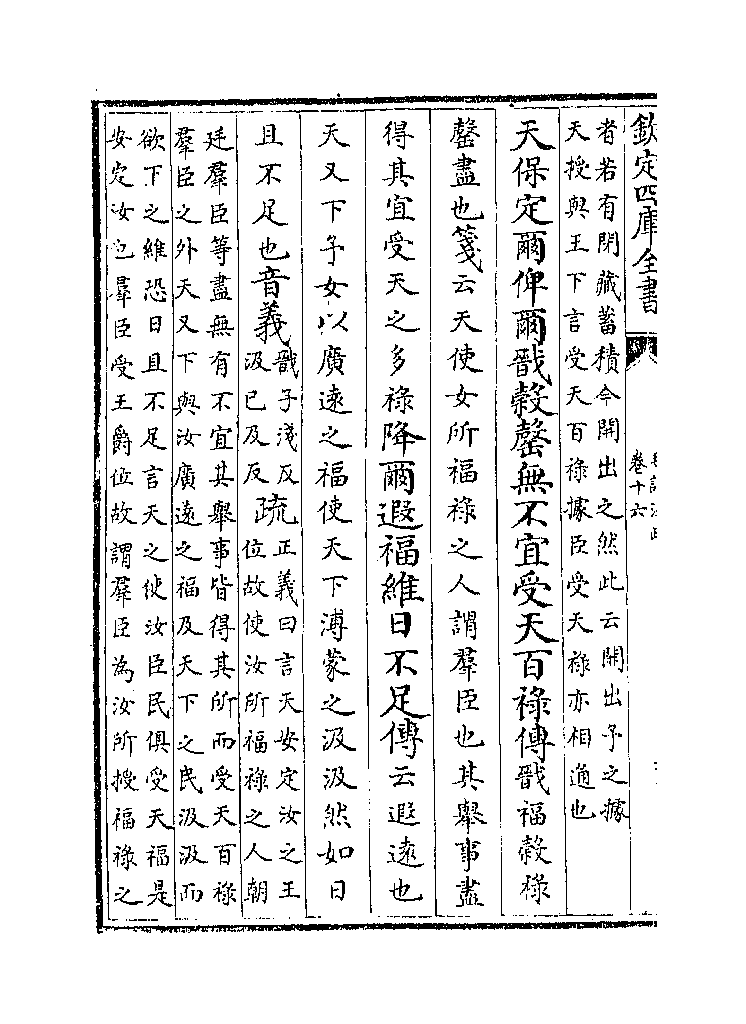 欽定四庫全書
卷十六
者若有閉藏蓄積今開出之然此云開出予之據
天授與王下言受天百祿據臣受天祿亦相通也
天保定爾俾爾戩穀罄無不宜受天百祿傳戩福穀祿
罄盡也箋云天使女所福祿之人謂羣臣也其舉事盡
得其宜受天之多祿降爾遐福維日不足傳云遐遠也
天又下予女以廣遠之福使天下溥蒙之汲汲然如日
且不足也音義戩子淺反
汲已及反疏正義曰言天安定汝之王
位故使汝所福祿之人朝
廷羣臣等盡無有不宜其舉事皆得其所而受天百祿
羣臣之外天又下與汝廣遠之福及天下之民汲汲而
欲下之維恐日且不足言天之使汝臣民俱受天福是
安定汝也羣臣受王爵位故謂羣臣為汝所授福祿之